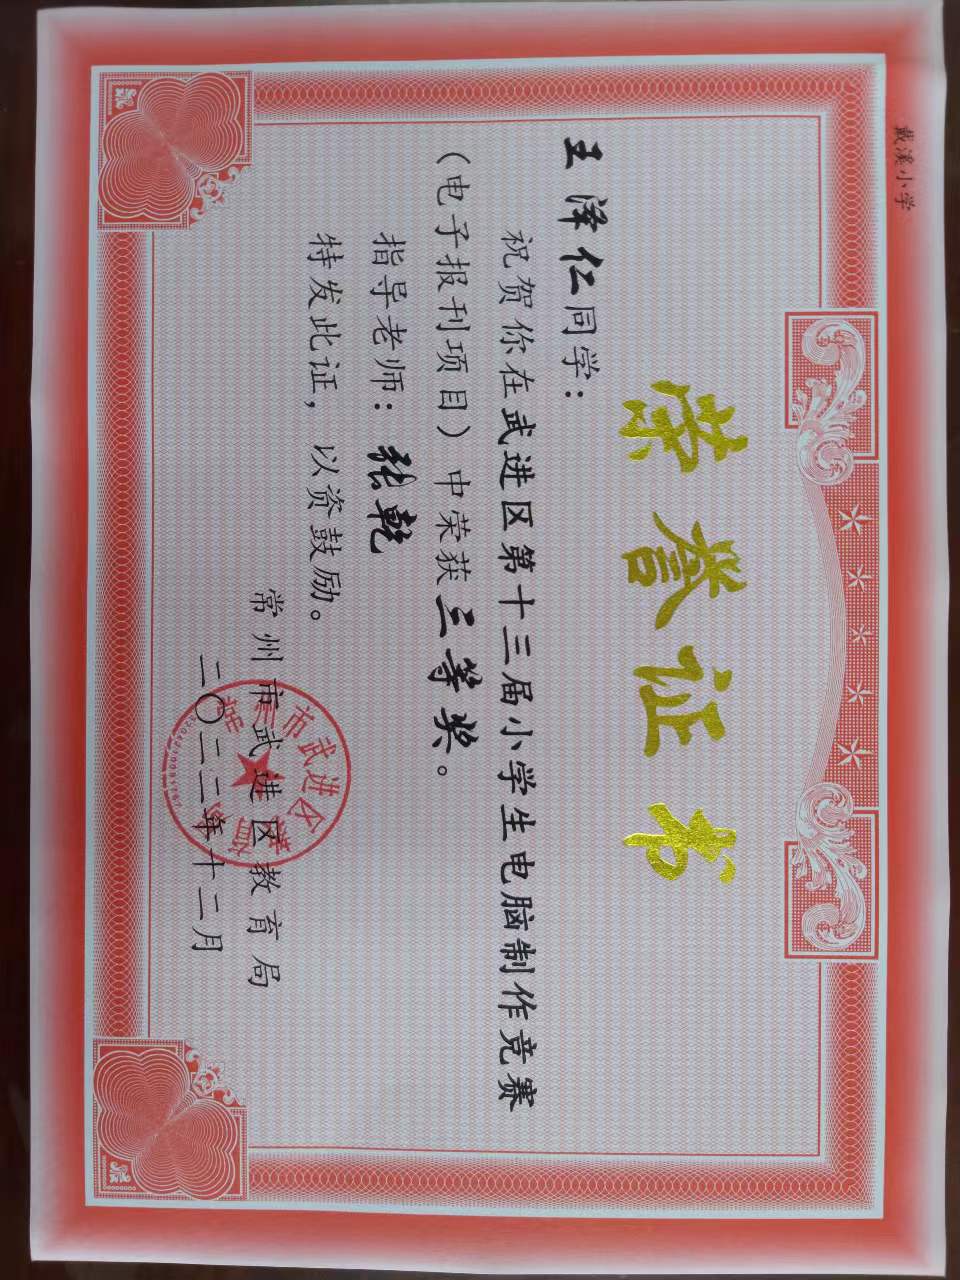 戴溪小学
荣誉证书
王泽仁同学：
祝贺你在武进区第十三届小学生电脑制作竞赛
（电子报刊项目）中荣获三等奖。
指导老师：张乾
特发此证，以资鼓励。
常州市武进区教育局
二〇二二年十二月